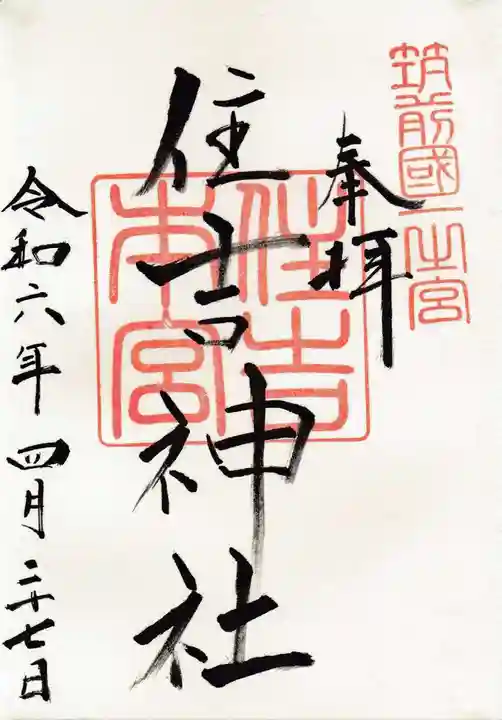 筑前國一之宮
奉拝
住吉神社
住吉
本宮
令和六年四月二十七日